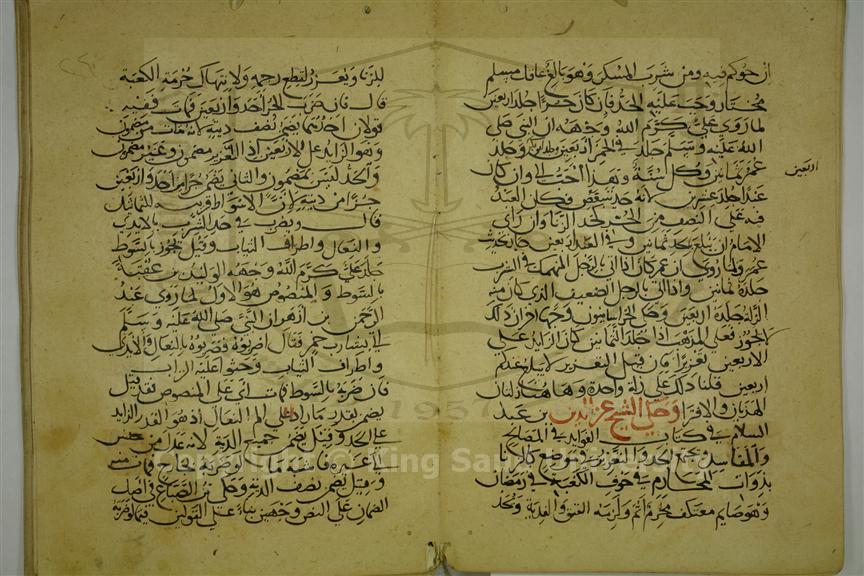 ان حوكم فيه ومن شرب المسكر وهو بالغ عاقل مسلم
مختار وجب عليه الحد فان كان حرا جلد اربعين
لما روي علي كرم الله وجهه ان النبي صلى
الله عليه وسلم جلد في الخمر اربعين وجلد
عمر ثمانين وكل سنة وهذا احب الي وان كان
اربعين
عبدا جلد عشرين لانه حد يتبعض فكان العبد
فيه على النصف من الحر كحد الزنا وان راى
الامام ان يبلغ بحد ثمانين وفي العبد اربعين جاز
عمر ولما روي ان عمر كان اذا اتي بالرجل المنهمك في الشرب
جلده ثمانين واذا اتي بالرجل الضعيف الذي كان منه
الزلة جلده اربعين وحكى الخراسانيون وجها اخر ان ذلك
لا يجوز فعلى المذهب اذا جلد ثمانين كان الزايد على
الاربعين تعزيرا فان قيل التعزير لا يبلغ عندكم
اربعين قلنا ذلك على زلة واحدة وهاهنا زلتان
الهذيان والافترا وحكى الشيخ عز الدين بن عبد
السلام في كتاب الفوايد في المصالح
والمفاسد يجمع الحد والتعزير في موضع كالزنا
بذوات المحارم في جوف الكعبة في رمضان
وهو صايم معتكف محرم اثم ولزمه العتق والفدية ويحد
للزنا ويعزر لقطع رحمه ولانتهاك حرمة الكعبة
قال فان ضرب الحر احد واربعين فمات ففيه
قولان احدهما يضمن نصف ديته لانه مات من مضمون
وهو الزايد على الاربعين اذ التعزير مضمون وغير مضمون
والحد ليس بمضمون والثاني يضمن جزا من احد واربعين
جزا من ديته لان الاسواط قريبة للتماثل
قال ويضرب في حد الشرب بالايدي
والنعال واطراف الثياب وقيل يجوز بالسوط
جلد علي كرم الله وجهه الوليد بن عقبة
بالسوط والمنصوص هو الاول لما روي عبد
الرحمن بن ازهر ان النبي صلى الله عليه وسلم
اتي بشارب خمر فقال اضربوه فضربوه بالنعال والايدي
واطراف الثياب وحثوا عليه التراب
فان ضربه بالسوط فمات اتى على المنصوص فقد قيل
يضمن بقدر ما زاد على الم النعال اذ هو القدر الزايد
على الحد وقيل يضمن جميع الدية لانه عدل من جنس
الى غيره فاشبه ما لو ضربه بجارح فمات
وقيل يضمن نصف الدية وحكى بن الصباغ في اصل
الضمان على النص وجهين بناء على القولين فيما لو ضربه